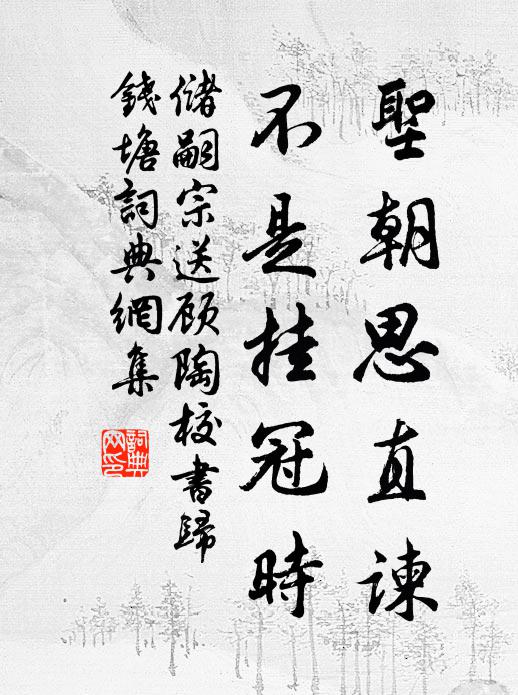 聖朝思直諫
不是挂冠時
儲嗣宗送顧陶校書歸
錢塘詞典網集
詞典
网印